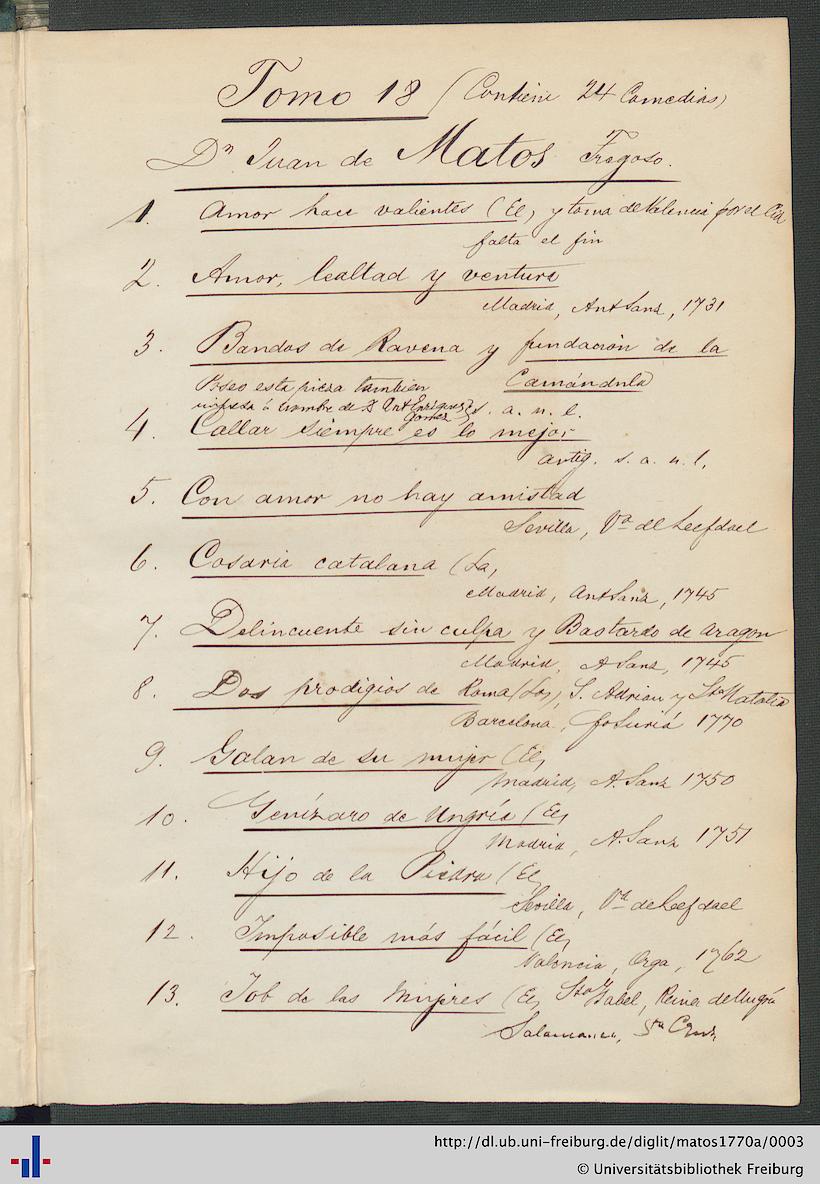 Tomo 18 (Contiene 24 Comedias)
Dn Juan de Matos Fragoso.
1. Amor hace valientes (El, y toma de Valencia por el Cid
falta el fin
2. Amor, lealtad y ventura
Madrid, Ant Sanz, 1731
3. Bandos de Ravena y fundación de la
Camándula
Poseo esta pieza tambien
impresa á nombre de D Ant Enriquez Gomez} s. a. n. l.
4. Callar siempre es lo mejor
antig. s. a. n. l.
5. Con amor no hay amistad
Sevilla, Vda de Leefdael
6. Cosaria catalana (La,
Madrid, Ant Sanz, 1745
7. Delincuente sin culpa y Bastardo de Aragon
Madrid, A Sanz, 1745
8. Dos prodigios de Roma (Los, S. Adrian y Sta Natalia
Barcelona, Suriá 1770
9. Galan de su mujer (El,
Madrid, A. Sanz 1750
10. Genízaro de Ungría (El,
Madrid, A. Sanz 1751
11. Hijo de la Piedra (El,
Sevilla, Vda de Leefdael
12. Imposible más fácil (El,
Valencia, Orga, 1762
13. Job de las Mujeres (El, Sta Isabel, Reina de Ungría
Salamanca, Sta Cruz
http://dl.ub.uni-freiburg.de/diglit/matos1770a/0003
© Universitätsbibliothek Freiburg